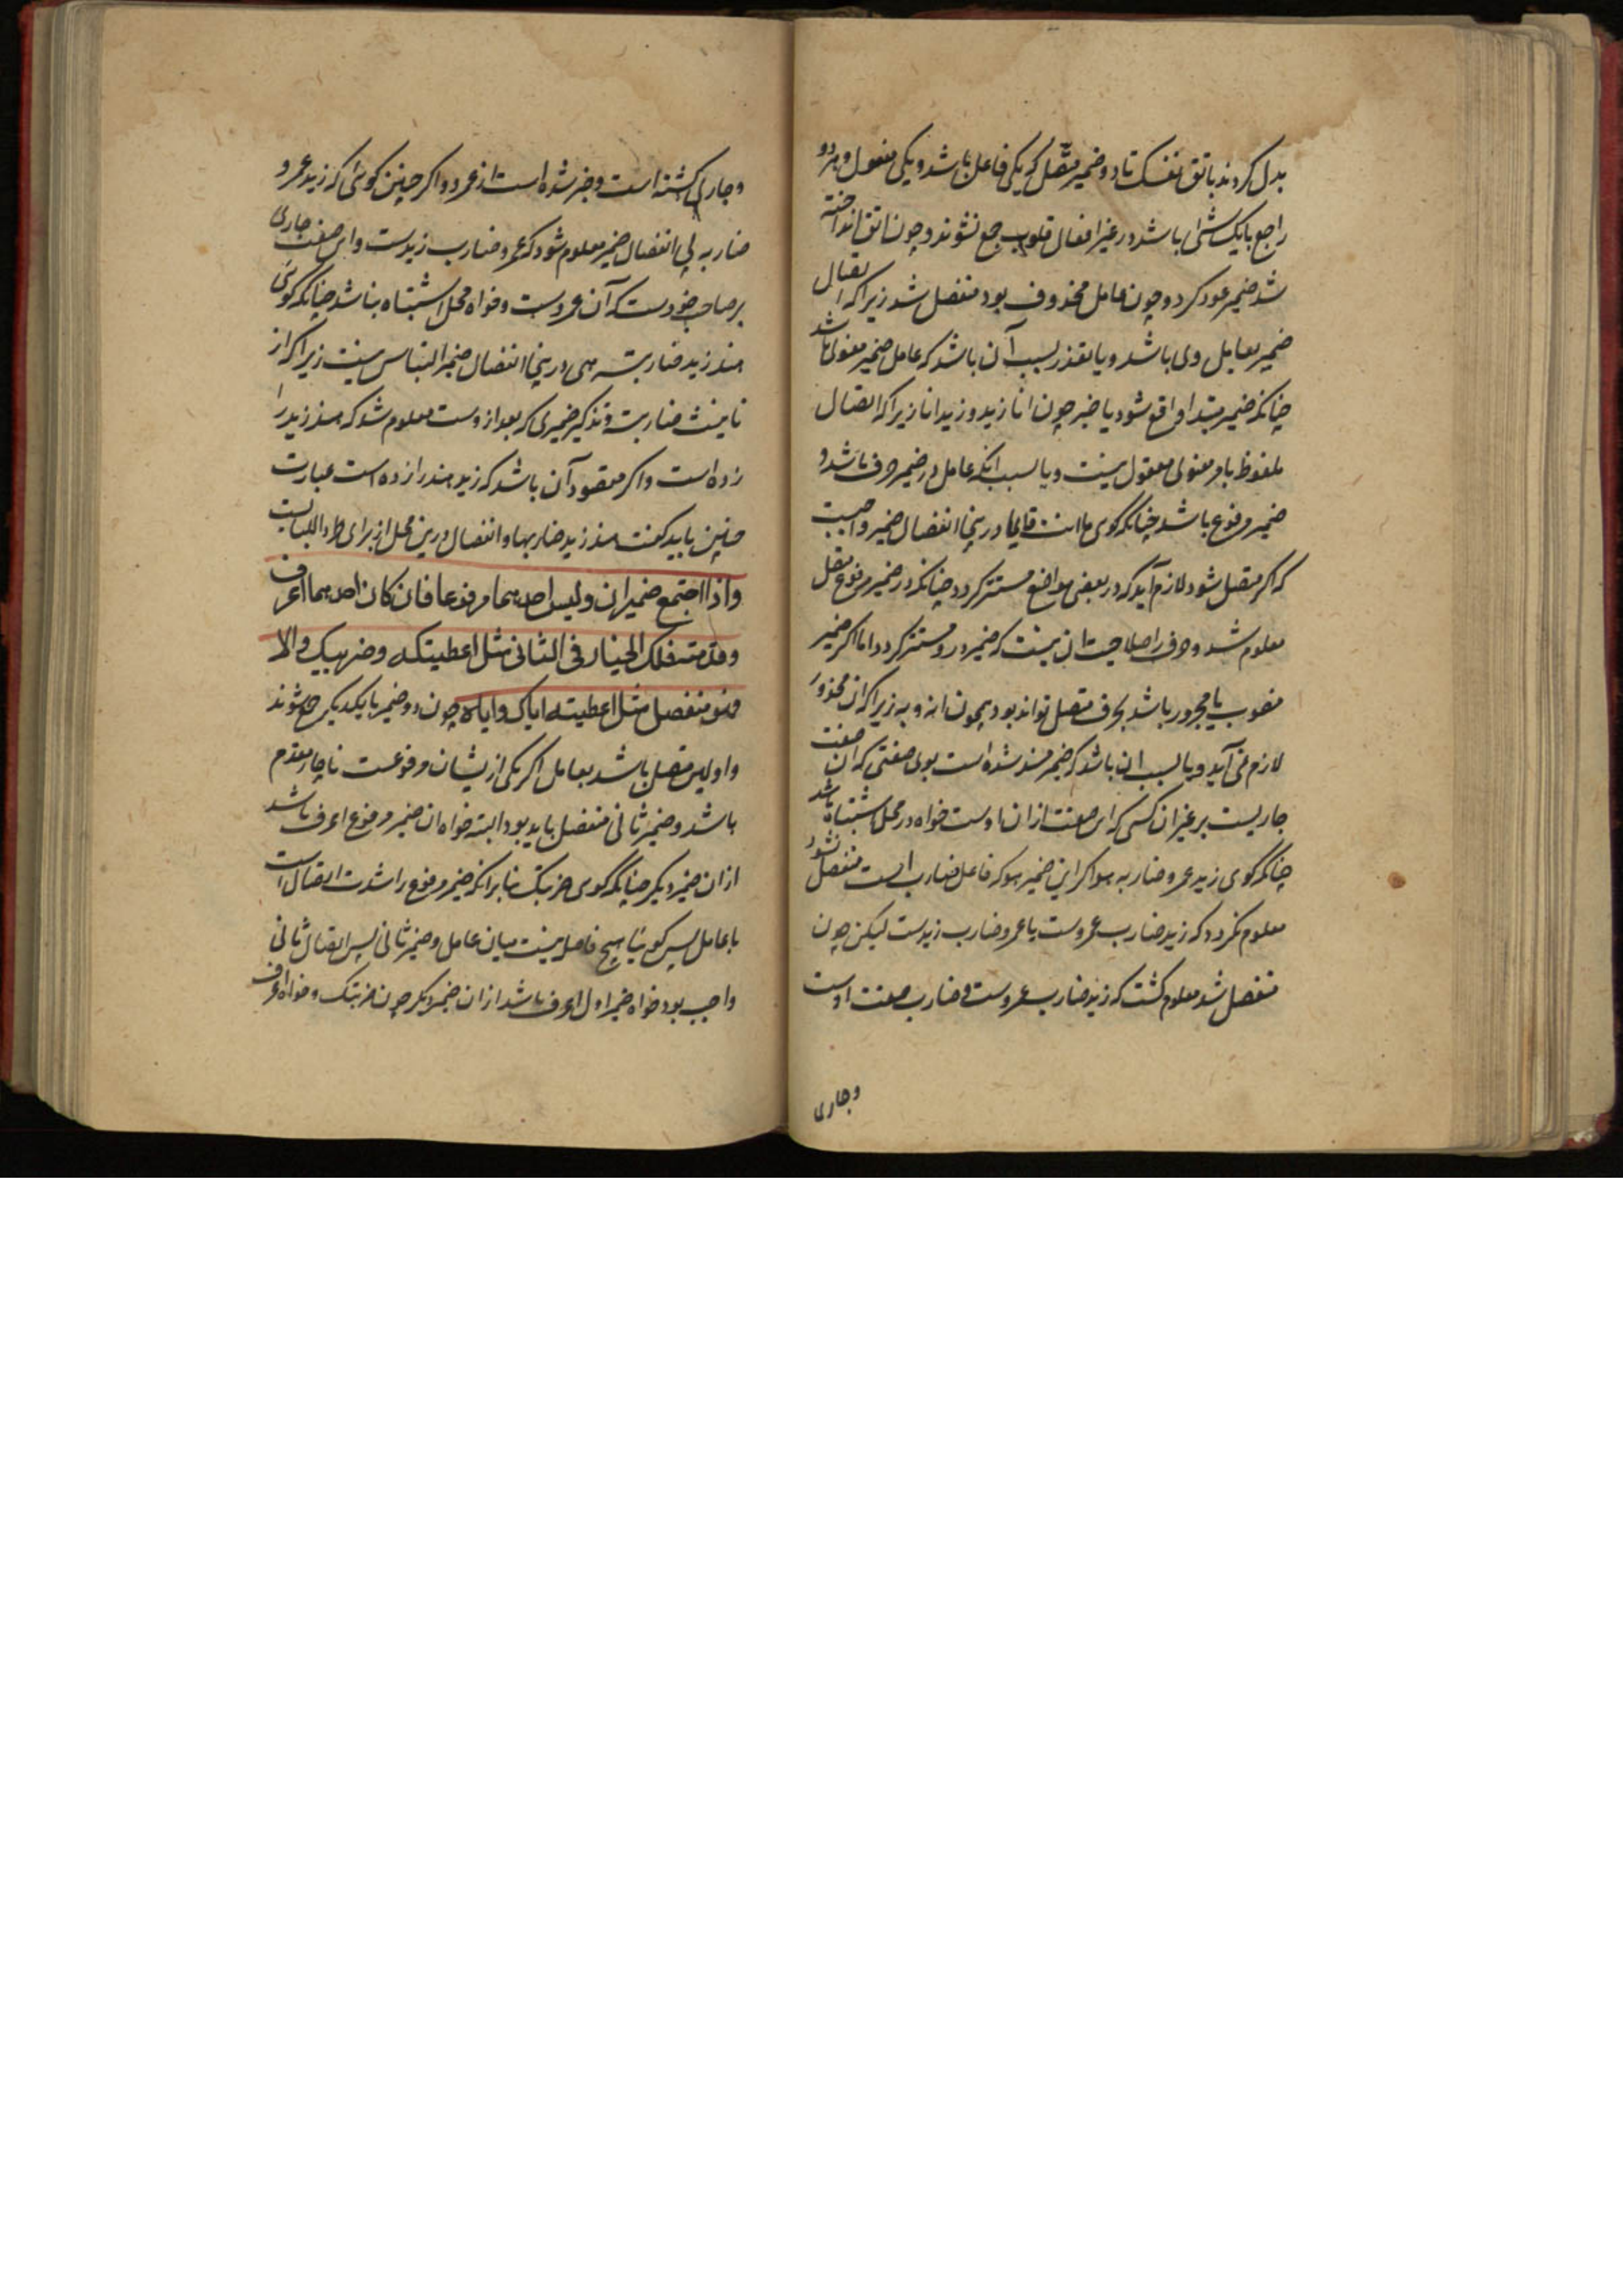 بدل کردند باتق نفسک تا دو ضمیر متصل که یکی فاعل باشد و یکی مفعول و هر دو
راجع بایک شئ باشد در غیر افعال قلوب جمع نشوند و چون اتق انداخته
شد ضمیر عود کرد و چون عامل محذوف بود منفصل شد زیرا که اتصال
ضمیر بعامل وی باشد و یا تعذر بسبب آن باشد که عامل ضمیر معنوی باشد
چنانکه ضمیر مبتدا واقع شود یا خبر چون انا زید و زید انا زیرا که اتصال
ملفوظ بامر معنوی معقول نیست و یا بسبب انکه عامل در ضمیر حرف باشد و
ضمیر مرفوع باشد چنانکه گوی ما انت قایما درینجا انفصال ضمیر واجبست
که اگر متصل شود لازم آید که در بعضی مواضع مستتر کردد چنانکه در ضمیر مرفوع متصل
معلوم شد و حرف را صلاحیت ان نیست که ضمیر درو مستتر کردد اما اکر ضمیر
منصوب یا مجرور باشد بحرف متصل تواند بود همچون انه و به زیرا که ان محذور
لازم نمی آید و یا بسبب ان باشد که ضمیر مسند شده است بوی صفتی که ان صفت
جاریست بر غیر ان کسی که این صفت ازان اوست خواه در محل اشتباه باشد
چنانکه گوی زید عمرو ضاربه هو اکر این ضمیر هو که فاعل ضارب است منفصل نشود
معلوم نکردد که زید ضارب عمروست یا عمرو ضارب زیدست لیکن چون
منفصل شد معلوم کشت که زید ضارب عمروست و ضارب صفت اوست
وجاری
وجاری کشته است و خبر شده است از عمرو و اکر چنین کوئی که زید عمرو
ضاربه بی انفصال ضمیر معلوم شود که عمرو ضارب زیدست و این صفت جاری
بر صاحب خودست که آن عمروست و خواه محل اشتباه نباشد چنانکه کوئی
هند زید ضاربته هی درینجا انفصال ضمیر التباس نیست زیرا که از
تانیث ضاربته و تذکیر ضمیری که بعد از وست معلوم شد که هند زید را
زده است و اکر مقصود آن باشد که زید هند را زده است عبارت
چنین باید کفت هند زید ضاربها و انفصال درین محل از برای طرد اللبابست
واذا اجتمع ضمیران ولیس احدهما مرفوعا فان کان احدهما اعرف
وقدمته فلک الخیار فی الثانی مثل اعطیتکه وضربیک والا
فهو منفصل مثل اعطیته ایاک وایاه چون دو ضمیر با یکدیکر جمع شوند
و اولین متصل باشد بعامل اکر یکی ازیشان مرفوعست ناچار مقدم
باشد و ضمیر ثانی منفصل باید بود البته خواه ان ضمیر مرفوع اعرف باشد
ازان ضمیر دیکر چنانکه گوی ضربتک بنا برانکه ضمیر مرفوع را شدت اتصال است
با عامل پس کوئیا هیچ فاصل نیست میان عامل و ضمیر ثانی پس اتصال ثانی
واجب بود خواه ضمیر اول اعرف باشد ازان ضمیر دیکر چون ضربتک و خواه اعرف